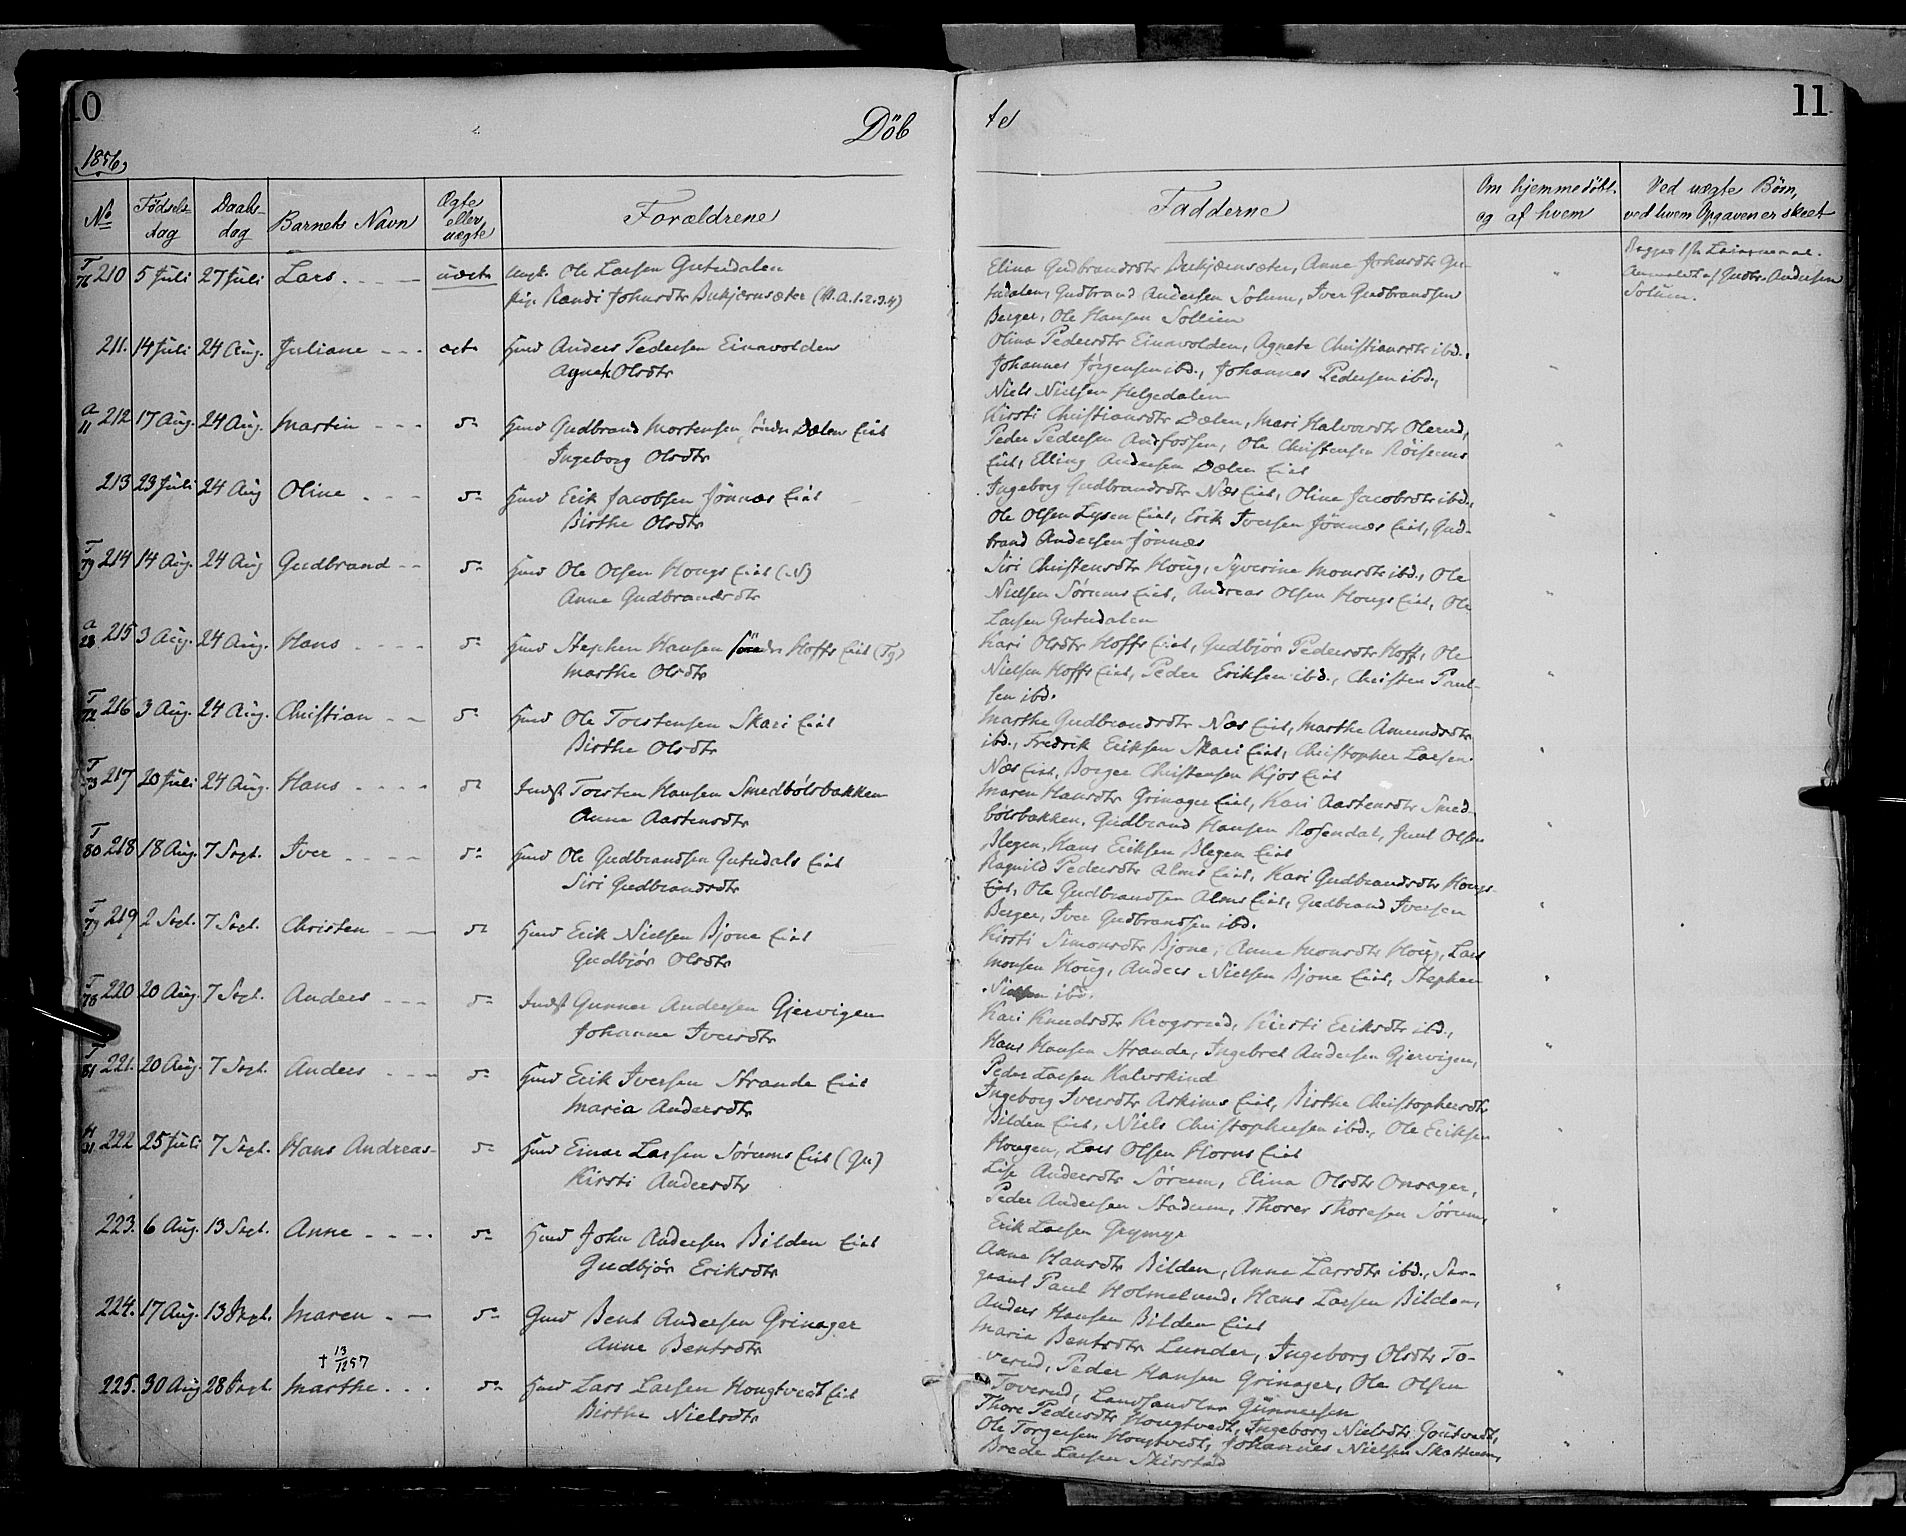 10
Döb
te
11
1856
No
Fødsels-
dag
Daabs-
dag
Barnets Navn
Ægte
eller
uægte
Forældrene
Fadderne
Om hjemmedöbt
og af hvem
Ved uægte Børn,
ved hvem Opgaven er skeet
T 76 210 5 Juli 27 Juli Lars uægte Ungk. Ole Larsen Gutudalen
Pig. Randi Johnsdtr Bukjærnsæter (N.A.1.2.3.4)
Elina Gudbrandsdtr Bukjærnsæter, Anne Johnsdtr Gu-
tudalen, Gudbrand Andersen Solum, Iver Gudbrandsen
Berger, Ole Hansen Sollien
Anmeldt af Gudbr. Andersen
Solum.
211. 14 Juli 24 Aug. Juliane ægt Gmd Anders Pedersen Einavolden
Agnet Olsdtr
Olina Pedersdtr Einavolden, Agnete Christiansdtr ibd.,
Johannes Jørgensen ibd., Johannes Pedersen ibd.,
Niels Nielsen Helgedalen
a 11 212 17 Aug. 24 Aug. Martin do Hmd Gudbrand Mortensen Søndr Dælen Eiet
Ingeborg Olsdtr
Kirsti Christiansdtr Dælen, Mari Halvordtr Olerud,
Peder Pedersen Andfossen, Ole Christensen Röisenms
Eiet, Elling Andersen Dælen Eiet
213 23 Juli 24 Aug Oline do Hmd Erik Jacobsen Jönnæs Eiet
Birthe Olsdtr
Ingeborg Gudbrandsdtr Næs Eiet, Oline Jacobsdtr ibd.,
Ole Olsen Lysen Eiet, Erik Iversen Jönnæs Eiet, Gud-
brand Andersen Jönnæs
T 79 214 14 Aug. 24 Aug Gudbrand do Hmd Ole Olsen Hougs Eiet (N)
Anne Gudbrandsdtr
Siri Christensdtr Houg, Syverine Monsdtr ibd., Ole
Nielsen Sørums Eiet, Andreas Olsen Hougs Eiet, Ole
Larsen Gutudalen
a 28 215 3 Aug. 24 Aug. Hans do Hmd Stephen Hansen Søndr Hoffs Eiet (Tg)
Marthe Olsdtr
Kari Olsdtr Hoffs Eiet, Gudbjør Pedersdtr Hoff, Ole
Nielsen Hoffs Eiet, Peder Eriksen ibd., Christen Paul-
sen ibd.
T 72 216 3 Aug. 24 Aug. Christian do Hmd Ole Torstensen Skari Eiet
Birthe Olsdtr
Marthe Gudbrandsdtr Næs Eiet, Marthe Amundsdtr
ibd., Fredrik Eriksen Skari Eiet, Christopher Larsen
Næs Eiet, Borger Christensen Kjos Eiet
T 73 217 20 Juli 24 Aug. Hans do Indst Torsten Hansen Smedbölsbakken
Anne Aastensdtr
Maren Hansdtr Grinager Eiet, Kari Aastensdtr Smed-
bölsbakken, Gudbrand Hansen Rosendal, Juul Olsen
Blegen, Hans Eriksen Blegen Eiet
T 80 218 18 Aug. 7 Sept. Iver do Hmd Ole Gudbrandsen Gutudals Eiet
Siri Gudbrandsdtr
Ragnild Pedersdtr Alms Eiet, Kari Gudbrandsdtr Hougs
Eiet, Ole Gudbrandsen Alms Eiet, Gudbrand Iversen
Berger, Iver Gudbrandsen ibd.
T 79 219 2 Sept. 7 Sept. Christen do Hmd Erik Nielsen Bjone Eiet
Gudbjör Olsdtr
Kirsti Simonsdtr Bjone, Anne Monsdtr Houg, Lars
Monsen Houg, Anders Nielsen Bjone Eiet, Stephen
Nielsen ibd.
T 78 220 20 Aug. 7 Sept. Anders do Indst Gunner Andersen Gjervigen
Johanne Iversdtr
Kari Knudsdtr Krogsrud, Kirsti Eriksdtr ibd.,
Hans Hansen Strande, Ingebret Andersen Gjervigen,
Peder Larsen Halvskind
T 81 221. 20 Aug. 7 Sept. Anders do Hmd Erik Iversen Strande Eiet
Maria Andersdtr
Ingeborg Iversdtr Askims Eiet, Birthe Christophersdtr
Bilden Eiet, Niels Christophersen ibd., Ole Eriksen
Hougen, Lars Olsen Horns Eiet
H 31 222 25 Juli 7 Sept. Hans Andreas do Hmd Einar Larsen Sørums Eiet (Gr)
Kirsti Andersdtr
Lise Andersdtr Sörum, Elina Olsdtr Onsager,
Peder Andersen Stadum, Thorer Thoresen Sörum,
Erik Larsen Grymyr
223. 6 Aug. 13 Sept. Anne do Hmd John Andersen Bilden Eiet
Gudbjör Eriksdtr
Anne Hansdtr Bilden, Anne Larsdtr ibd., Ser-
geant Paul Holmelund, Hans Larsen Bilden,
Anders Hansen Bilden Eiet
224. 17 Aug. 13 Sept. Maren do Gmd Bent Andersen Grinager
Anne Bentsdtr
Maria Bentsdtr Lunder, Ingeborg Olsdtr To-
verud, Peder Hansen Grinager, Ole Olsen
Toverud, Landhandler Günnersen
† 13/12 57
225. 30 Aug 28 Sept. Marthe do Hmd Lars Larsen Hougtvedt Eiet
Birthe Nielsdtr
Thore Pedersdtr Hougtvedt, Ingeborg Nielsdtr Goutvedt,
Ole Torgersen Hougtvedt, Johannes Nielsen Skattum,
Brede Larsen Skirstad